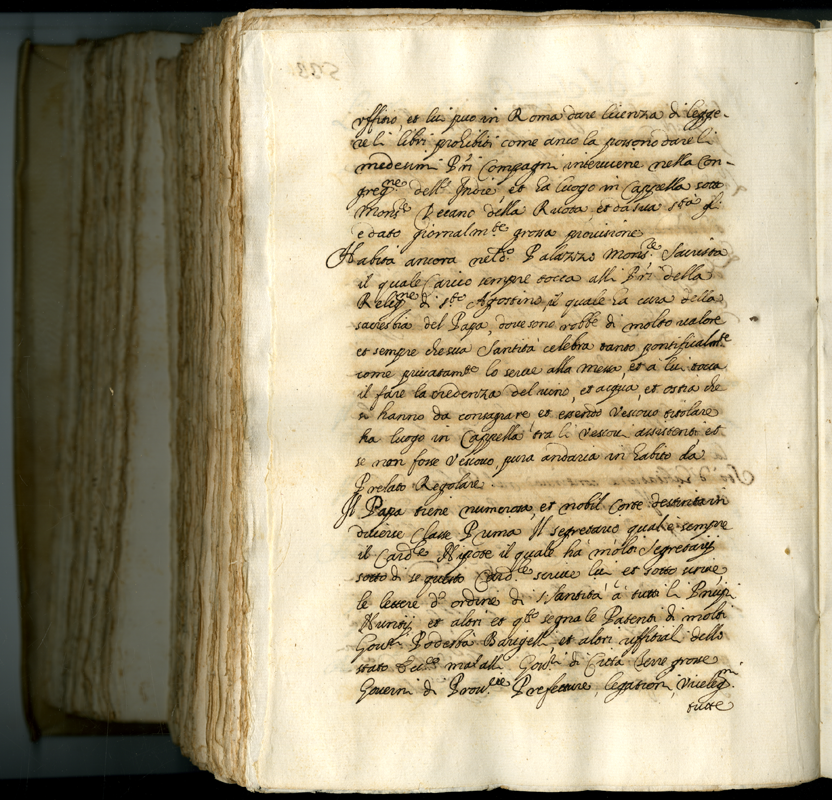 uffitio, et lui puo in Roma dare licenza di legge-
re li libri prohibiti come anco la possono dare li
medesimi P.ri Compagni, interviene nella Con-
greg.ne dell'Indie, et ha luogo in Cappella sotto
Mons.re Decano della Ruota, et da sua S.tà gl'
e dato giornalm.te grossa provisione
Habita ancora nel d.o Palazzo Mons.re Sacrista
il quale Carico sempre tocca alli P.ri della
Relig.ne di S.to Agostino, il quale ha cura della
sacrestia del Papa, dove sono robbe di molto valore
et sempre che sua Santità celebra tanto pontificalm.te
come privatam.te lo serve alla messa, et a lui tocca
il fare la credenza del vino, et acqua, et ostia che
si hanno da consagrare et essendo Vescovo titolare
ha luogo in Cappella tra li Vescovi assistenti et
se non fosse Vescovo, pura andaria in habito da
Prelato Regolare.
Il Papa tiene numerosa, et nobil Corte destinta in
diverse Classe Prima Il segretario qual è sempre
il Card.le Nipote il quale ha molti Segretarij
sotto di se questo Card.le scrive lui et sotto scrive
le lettere d'ordine di S. Santità à tutti li Prn̄pi
Nuntij, et altri et q.to segna le Patenti di molti
Gov.ri Podestà Barigelli et altri uffitiali dello
stato Ecc.co ma alli Gov.ri di Città Terre grosse
Governi di Prov.cie Prefetture, legationi, Viceleg.ni
tutte